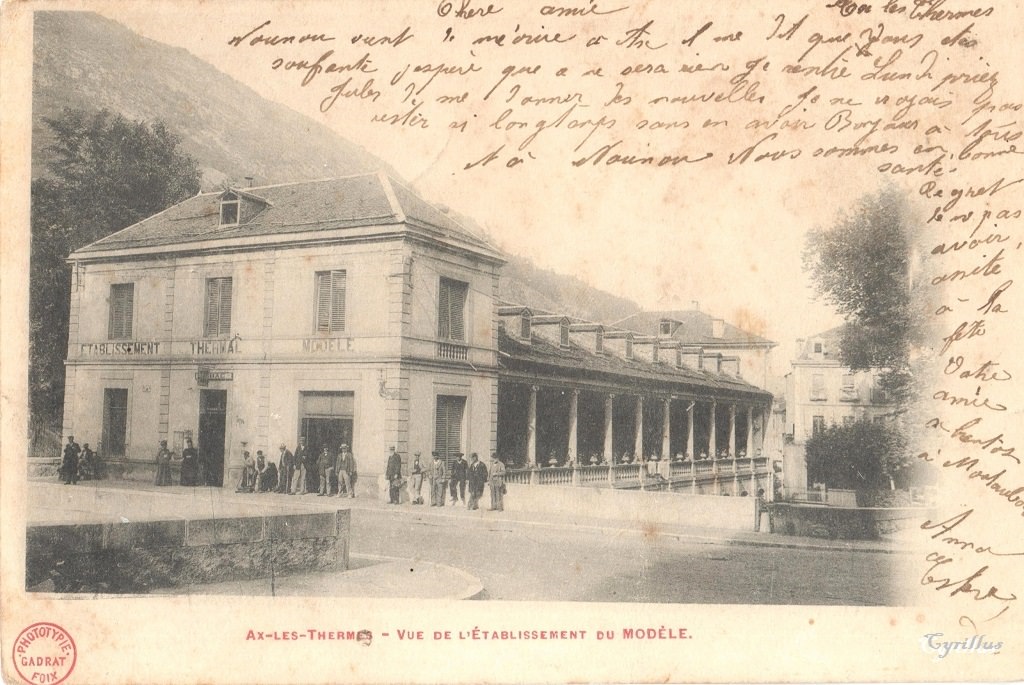 Chere amie
Ax les Thermes
Nounou vient de m'écrire a Ax il me dit que vous êtes
soufrante j'espère que ce ne sera rien je rentre Lundi priez
Jules de me donner des nouvelles je ne voyais pas
rester si longtemps sans en avoir Bonjour à tous
et à Nounou Nous sommes en bonne
santé
Regret
de ne pas
avoir
assisté
à la
fête
Votre
amie
a bientot
a Montauban
Anna
ÉTABLISSEMENT THERMAL MODÈLE
AX-LES-THERMES - VUE DE L'ÉTABLISSEMENT DU MODÈLE.
PHOTOTYPIE
GADRAT
FOIX
Cyrillus